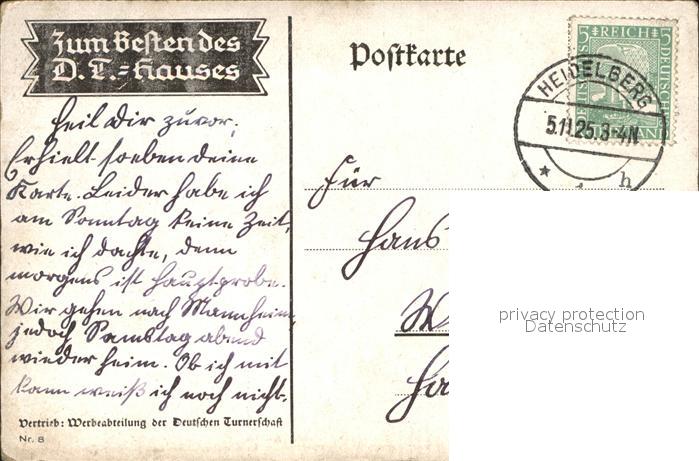 Zum Besten des
D. T.=Hauses
Postkarte
5 REICH 5
HEIDELBERG
5.11.25.3-4N
h
Heil dir zuvor;
Erhielt soeben deine
Karte. Leider habe ich
am Sonntag keine Zeit,
wie ich dachte, denn
morgens ist Hauptprobe.
Wir gehen nach Mannheim
jedoch Samstag abend
wieder heim. Ob ich mit
kann weiß ich noch nicht.
Für
Hans
privacy protection
Datenschutz
Vertrieb: Werbeabteilung der Deutschen Turnerschaft
Nr. 8